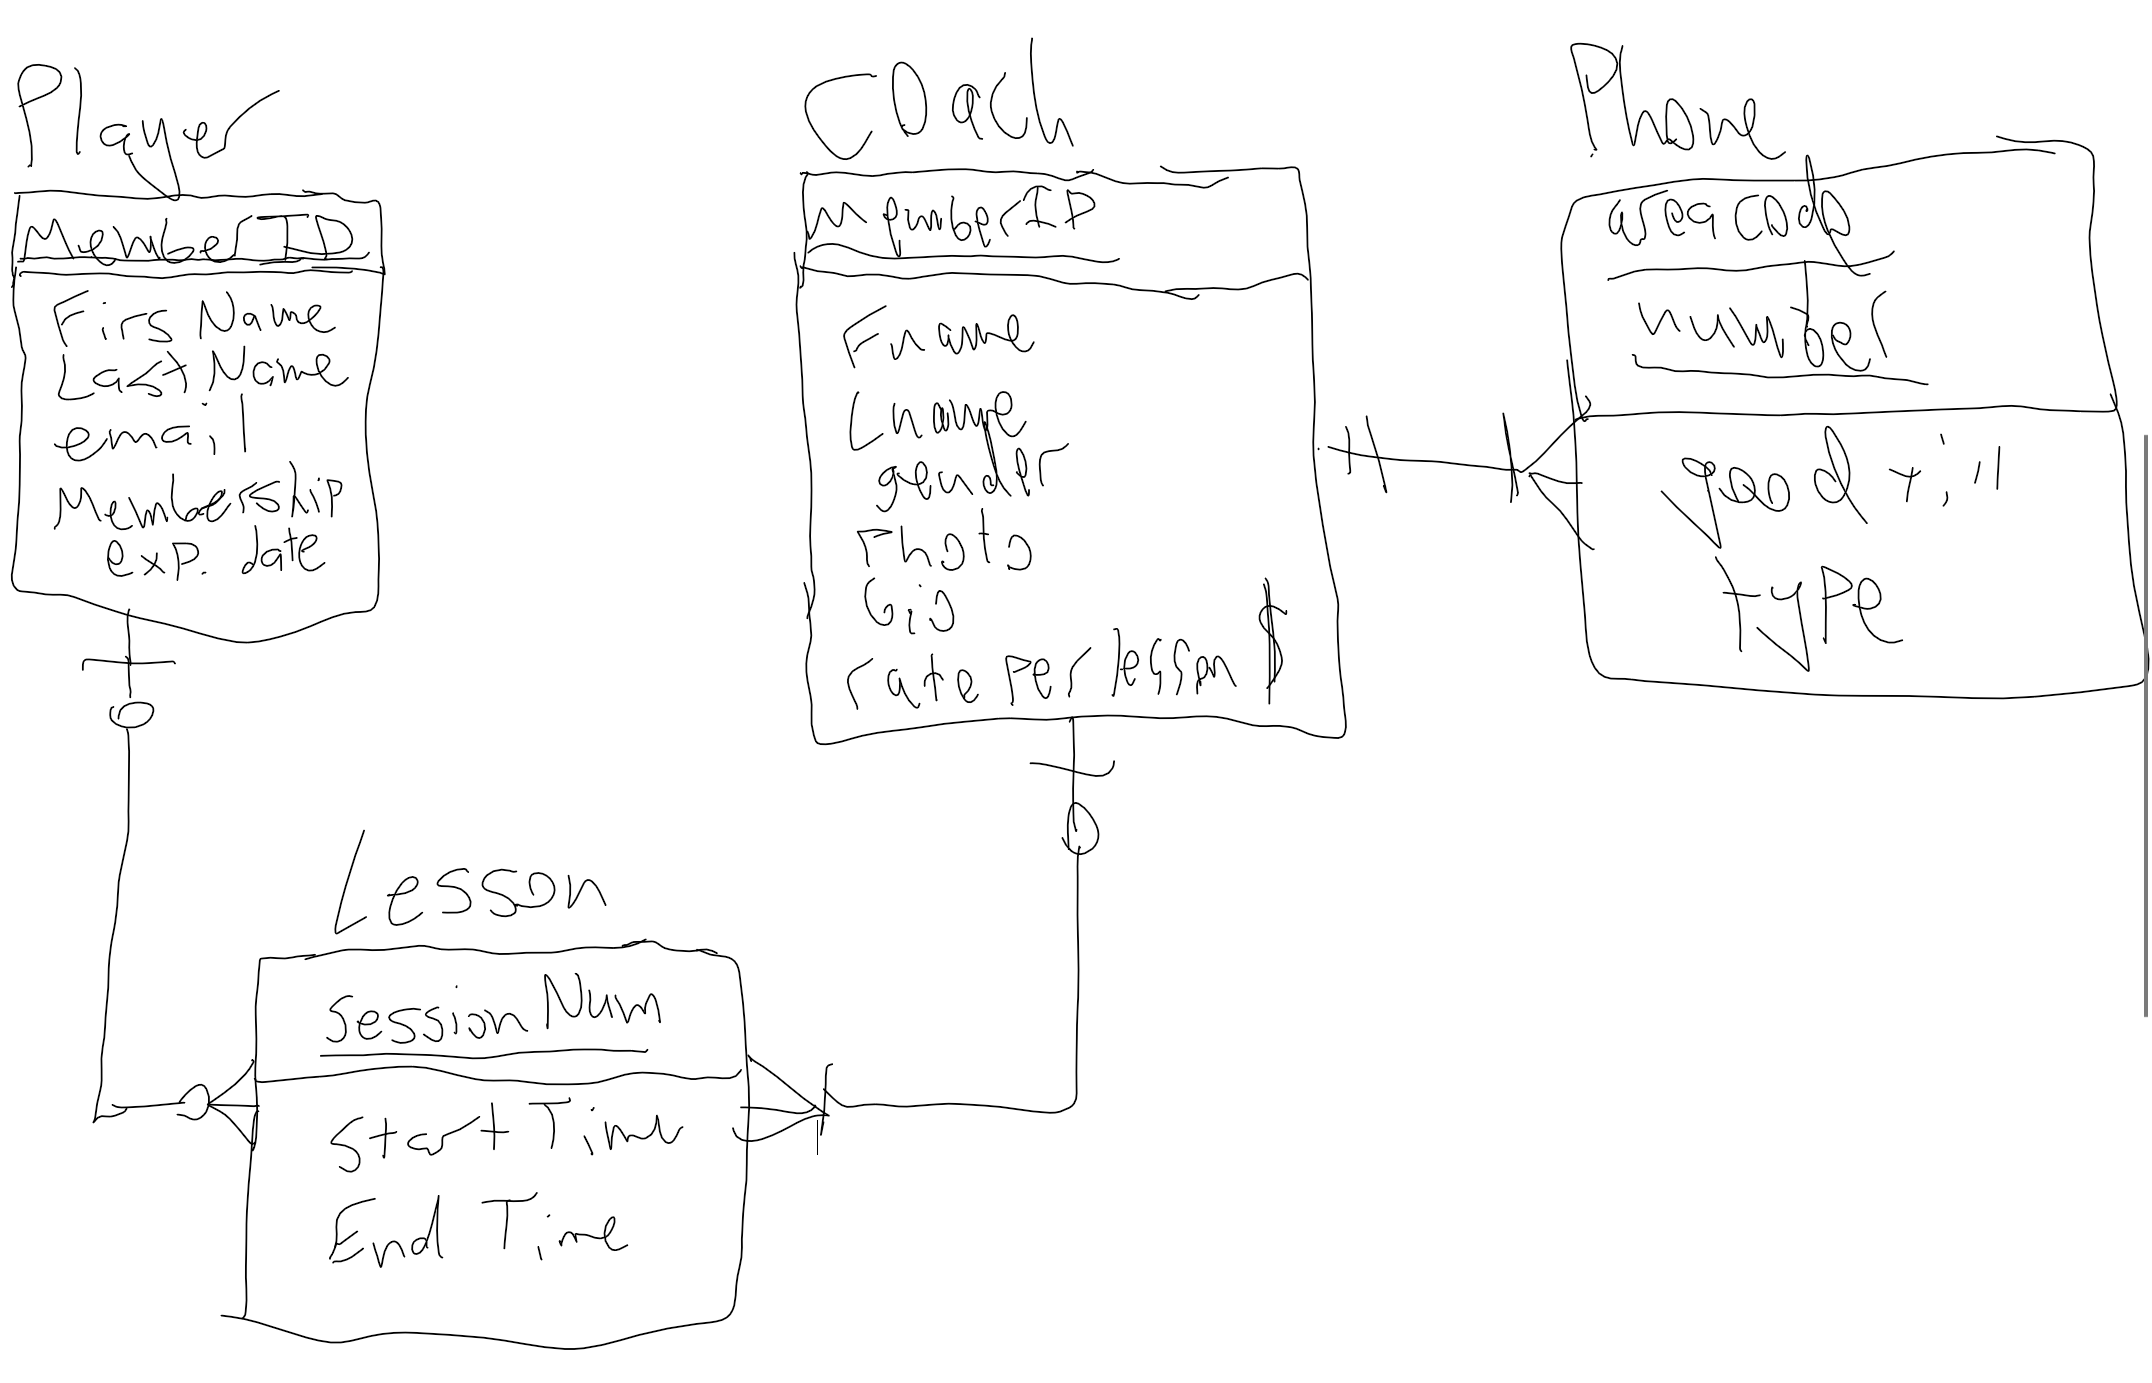 Player
MemberID
Firs Name
Last Name
email
Membership
exp. date
Coach
MemberID
Fname
Lname
gender
Photo
Bio
rate per lesson $
Phone
area code
number
good till
type
Lesson
Session Num
Start Time
End Time